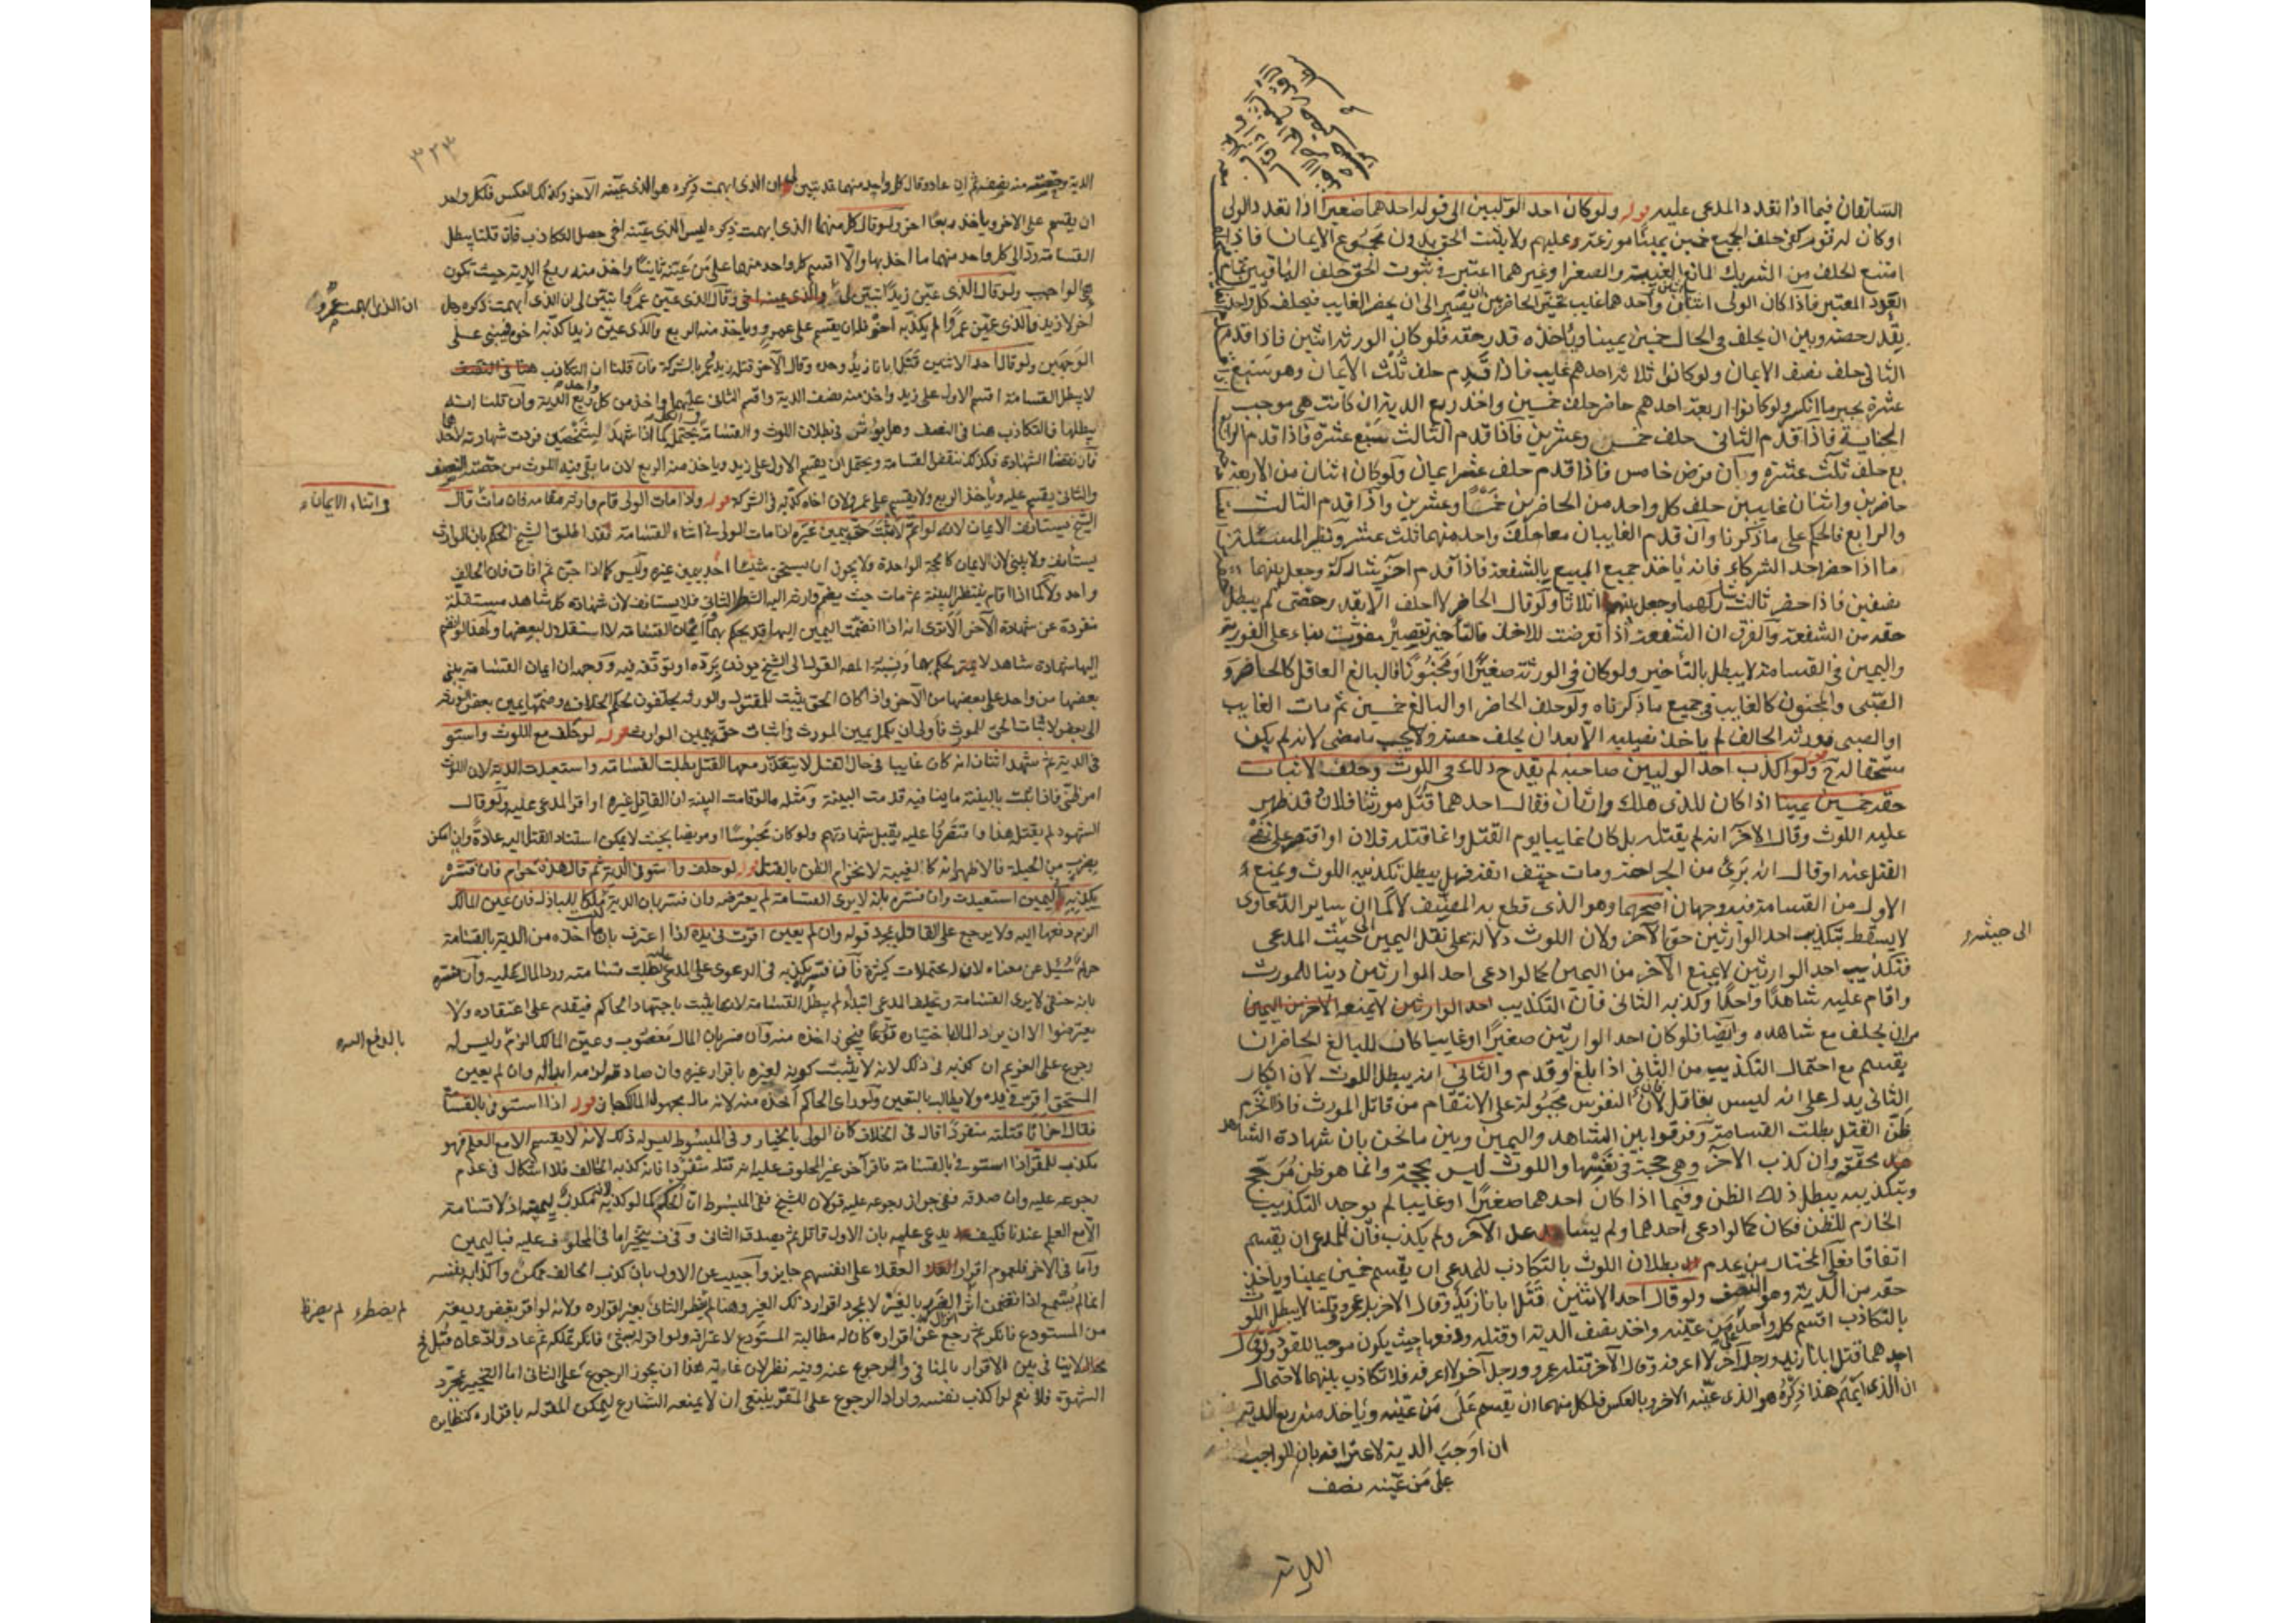 السابقان فيما اذا تعدد المدعى عليه قوله ولو كان احد الوليين الى قوله احدهما صغيرا اذا تعدد الولى
او كان له قوم كفى حلف الجميع خمسين يمينا موزعة عليهم ولا يثبت الحق بدون مجموع الايمان فاذا
امتنع الحلف من الشريك المانع الغيبة والصغر وغيرهما اعتبر فى ثبوت الحق حلف الباقين تمام
العدد المعتبر فاذا كان الولى اثنان واحدهما غايب تخير الحاضر بين ان يصبر الى ان يحضر الغايب فيحلف كل واحد
بقدر حصته وبين ان يحلف فى الحال خمسين يمينا وياخذ قدر حقه فلو كان الورثة اثنين فاذا قدم
الثانى حلف نصف الايمان ولو كانوا ثلاثة احدهم غايب فاذا قدم حلف ثلث الايمان وهو سبع
عشرة بجبر ما انكسر ولو كانوا اربعة احدهم حاضر حلف خمسين واخذ ربع الدية ان كانت هى موجب
الجناية فاذا قدم الثانى حلف خمس وعشرين فاذا قدم الثالث سبع عشرة فاذا قدم الرابع
حلف ثلث عشرة وان فرض خامس فاذا قدم حلف عشر ايمان ولو كان اثنان من الاربعة
حاضرين واثنان غايبين حلف كل واحد من الحاضرين خمسا وعشرين واذا قدم الثالث
والرابع فالحكم على ما ذكرنا وان قدم الغايبان معا حلف واحد منهما ثلث عشر ونظير المسئلة
ما اذا حضر احد الشركاء فانه ياخذ جميع المبيع بالشفعة فاذا قدم اخر شاركه وجعل بينهما
نصفين فاذا حضر ثالث شاركهما وجعل بينهم اثلاثا ولو قال الحاضر لا احلف الا بقدر حصتى لم يبطل
حقه من الشفعة والفرق ان الشفعة اذا تعرضت للاخذ فالتاخير تقصير مفوت بناء على الفورية
واليمين فى القسامة لا يبطل بالتأخير ولو كان فى الورثة صغيرا او مجنونا فالبالغ العاقل كالحاضر و
الصبى والمجنون كالغايب فى جميع ما ذكرناه ولو حلف الحاضر او البالغ خمسين ثم مات الغايب
او الصبى وورثه الحالف لم ياخذ نصيبه الا بعد ان يحلف حصته ولا يحسب ما مضى لانه لم يكن
مستحقا له ح قوله ولو اكذب احد الوليين صاحبه لم يقدح ذلك فى اللوث وحلف لاثبات
حقه خمسين يمينا اذا كان للذى هلك وارثان فقال احدهما قتل مورثنا فلان قد ظهر
عليه اللوث وقال الاخر انه لم يقتله بل كان غايبا يوم القتل وانما قتله فلان او اقتصر على نفى
القتل عنه او قال انه برئ من الجراحة ومات حتف انفه فهل يبطل تكذيبه اللوث ويمنع
الاول من القسامة فيه وجهان اصحهما وهو الذى قطع به المصنف لا كما ان ساير الدعاوى
لا يسقط بتكذيب احد الوارثين حق الاخر ولان اللوث دلالة على نقل اليمين الى حيث المدعى
فتكذيب احد الوارثين لا يمنع الاخر من اليمين كما لو ادعى احد الوارثين دينا للمورث
واقام عليه شاهدا واحدا وكذبه الثانى فان التكذيب احد الوارثين لا يمنع الاخر من اليمين
من ان يحلف مع شاهده وايضا فلو كان احد الوارثين صغيرا او غايبا كان للبالغ الحاضر ان
يقسم مع احتمال التكذيب من الثانى اذا بلغ او قدم والثانى انه يبطل اللوث لان انكار
الثانى يدل على انه ليس بقاتل فان النفوس مجبولة على الانتقام من قاتل المورث فاذا انخرم
ظن القتل بطلت القسامة وفرقوا بين الشاهد واليمين وبين ما نحن بان شهادة الشاهد
محققة وان كذب الاخر وهى حجة فى نفسها واللوث ليس بحجة وانما هو ظن مرجح
وبتكذيبه يبطل ذلك الظن وفيما اذا كان احدهما صغيرا او غايبا لم يوجد التكذيب
الخارم للظن فكان كما لو ادعى احدهما ولم يساعد الاخر ولم يكذب فان للمدعى ان يقسم
اتفاقا فعلى المختار من عدم بطلان اللوث بالتكاذب للمدعى ان يقسم خمسين يمينا وياخذ
حقه من الدية وهو النصف ولو قال احد الاثنين قتل ابانا زيد وقال الاخر بل عمرو وقلنا لا يبطل اللوث
بالتكاذب اقسم كل واحد على من عينه واخذ نصف الدية
احدهما قتل ابانا زيد ورجل اخر لا اعرفه وقال الاخر قتله عمرو ورجل اخر لا اعرفه فلا تكاذب بينهما لاحتمال
ان الذى ابهم هذا ذكره هو الذى عينه الاخر وبالعكس فلكل منهما ان يقسم على من عينه وياخذ منه ربع الدية
ان اوجب الدية لاعترافه بان الواجب
على من عينه نصف
الى حيثه و
٣٢٣
الدية منه نصف ثم ان عاد وقال كل واحد منهما قد تبين لى ان الذى ابهمت ذكره هو الذى عينه الاخر وكذلك العكس فلكل واحد
ان يقسم على الاخر وياخذ ربعا اخر ولو قال كل منهما الذى ابهمت ذكره ليس الذى عينه اخى حصل التكاذب فان قلنا يبطل
القسامة رد الى كل واحد منهما ما اخذ بها والا اقسم كل واحد منهما على من عينه ثانيا واخذ منه ربع الدية حيث تكون
هى الواجب ولو قال الذى عين زيدا تبين لى والذى عينه اخى وقال الذى عين عمروا تبين لى ان الذى ابهمت ذكره رجل
اخر لا زيد والذى عين عمروا لم يكذبه اخوه فله ان يقسم على عمرو وياخذ منه الربع والذى عين زيدا كذبه اخوه فيبنى على
الوجهين ولو قال احد الاثنين قتل ابانا زيد وحده وقال الاخر قتله زيد وعمر بالشركة فان قلنا ان التكاذب هنا فى النصف
لا يبطل القسامة اقسم الاول على زيد واخذ منه نصف الدية واقسم الثانى عليهما واخذ من كل واحد ربع الدية وان قلنا انه
يبطلها فالتكاذب هنا فى النصف وهل يؤثر فى بطلان اللوث والقسامة فى الكل يحتمل كما اذا شهد لشخصين فردت شهادته لاحدهما
فان نقضنا الشهادة فكذلك تنقض القسامة ويحتمل ان يقسم الاول على زيد وياخذ منه الربع لان ما بقى فيه اللوث من حصته النصف
والثانى يقسم عليه ويأخذ الربع ولا يقسم على عمرو لان اخاه كذبه فى الشركة قوله ولو مات الولى قام وارثه مقامه فان مات قال
الشيخ يستانف الايمان لانه لو اتم لاثبت حقه بيمين غيره اذا مات الولى فى اثناء القسامة فقد اطلق الشيخ الحكم بان الوارث
يستأنف ولا يبنى لان الايمان كالحجة الواحدة ولا يجوز ان يستحق شيئا احد بيمين غيره وليس كما اذا جن ثم افاق فان الحالف
واحد ولا كما اذا اقام بشطر البينة ثم مات حيث يضم وارثه اليه الشطر الثانى فلا يستانف لان شهادة كل شاهد مستقلة
منفردة عن شهادة الاخر الا ترى انه اذا انضمت اليمين اليها قد يحكم بهما وايمان القسامة لا استقلال لبعضها ولهذا لو انضم
اليها شهادة شاهد لا يحكم بها ونسبة المصه القول الى الشيخ يؤذن برده او توقفه فيه ووجهه ان ايمان القسامة يبنى
بعضها من واحد على بعضها من الاخر واذا كان الحق يثبت للمقتول والورثة يحلفون بحكم الخلافة وضمنا يمين بعض الورثة
الى بعض لاثبات الحق للمورث فأولى ان يكمل يمين المورث فى اثبات حقه بيمين الوارث قوله لو حلف مع اللوث واستوفى
الدية ثم شهد اثنان انه كان غايبا فى حال القتل لا يقدر معها القتل بطلت القسامة واستعيدت الدية لان اللوث
امر ظنى فاذا ثبت بالبينة ما ينافيه قدمت البينة ومثله ما لو قامت البينة ان القاتل غيره او اقر المدعى عليه ولو قال
الشهود لم يقتله هذا واقتصروا عليه لم يقبل شهادتهم ولو كان محبوسا او مريضا بحيث لا يمكن استناد القتل اليه عادة وان امكن
بضرب من الحيلة فالاظهر انه كالغيبة لانخرام الظن بالقتل قوله لو حلف واستوفى الدية ثم قال هذه حرام فان فسره
بكذبه فى اليمين استعيدت وان فسره بانه لا يرى القسامة لم يعترض وان فسر بان الدية ليست ملكا للباذل فان عين المالك
الزم دفعها اليه ولا يرجع على القاتل بمجرد قوله وان لم يعين اقرت فى يده اذا اعترف بان ما اخذه من الدية بالقسامة
حرام سئل عن معناه لان له محتملات كثيرة فان فسر بكذبه فى الدعوى على المدعى عليه بطلت قسامته ورد المال عليه وان فسره
بانه حنفى لا يرى القسامة وتحليف المدعى ابتداء لم يبطل القسامة لانها يثبت باجتهاد الحاكم فيقدم على اعتقاده ولا
يعترضوا الا ان يرد المال باختياره تورعا فيجوز اخذه منه وان فسر بان المال مغصوب وعين المالك الزم وليس له
رجوع على الغريم ان كذبه فى ذلك لانه لا يثبت كونه لغيره باقرار غيره وان صادقه لزمه ابداله وان لم يعين
المستحق اقرت فى يده ولا يطالب بالتعيين ولو راى الحاكم اخذه منه لانه مال مجهول المالك جاز قوله اذا استوفى بالقسامة
فقال اخر انا قتلته منفردا قال فى الخلاف كان الولى بالخيار وفى المبسوط ليس له ذلك لانه لا يقسم الا مع العلم فهو
مكذب للمقر اذا استوفى بالقسامة فاقر اخر غير المحلوف عليه انه قتله منفردا فان كذبه الحالف فلا اشكال فى عدم
رجوعه عليه وان صدقه ففى جواز رجوعه عليه قولان للشيخ ففى المبسوط ان الحكم كما لو كذبه لانه مكذب ليمينه اذ لا قسامة
الا مع العلم عندنا فكيف يدعى عليه بان الاول قاتل ثم يصدق الثانى وفى ف يتخير اما فى المحلوف عليه فباليمين
واما فى الاخر فلعموم اقرار العقلا على انفسهم جايز واجيب عن الاول بان كذب الحالف ممكن واكذابه نفسه
انما لم يسمع اذا تضمن اثر الضرر بالغير لا بمجرد اقرار ذلك الغير وهنا لم يضطر الثانى بغير اقراره ولانه لو اقر بقبض وديعته
من المستودع فانكر ثم رجع عن انكاره كان له مطالبة المستودع لاعترافه ولو اقر له بشئ فانكر تملكه ثم عاد وادعاه قبل فح
لا ينافى بين الاقرار بالمنافى والرجوع عنه وفيه نظر لان غاية هذا ان يجوز الرجوع على الثانى اما التخيير بمجرد
الشهوة فلا نعم لو اكذب نفسه واراد الرجوع على المقر ينبغى ان لا يمنعه الشارع ليمكن المقر له باقراره كنظايره
ان الذى ابهمت عمرو
فى اثناء الايمان
بالدفع اليه